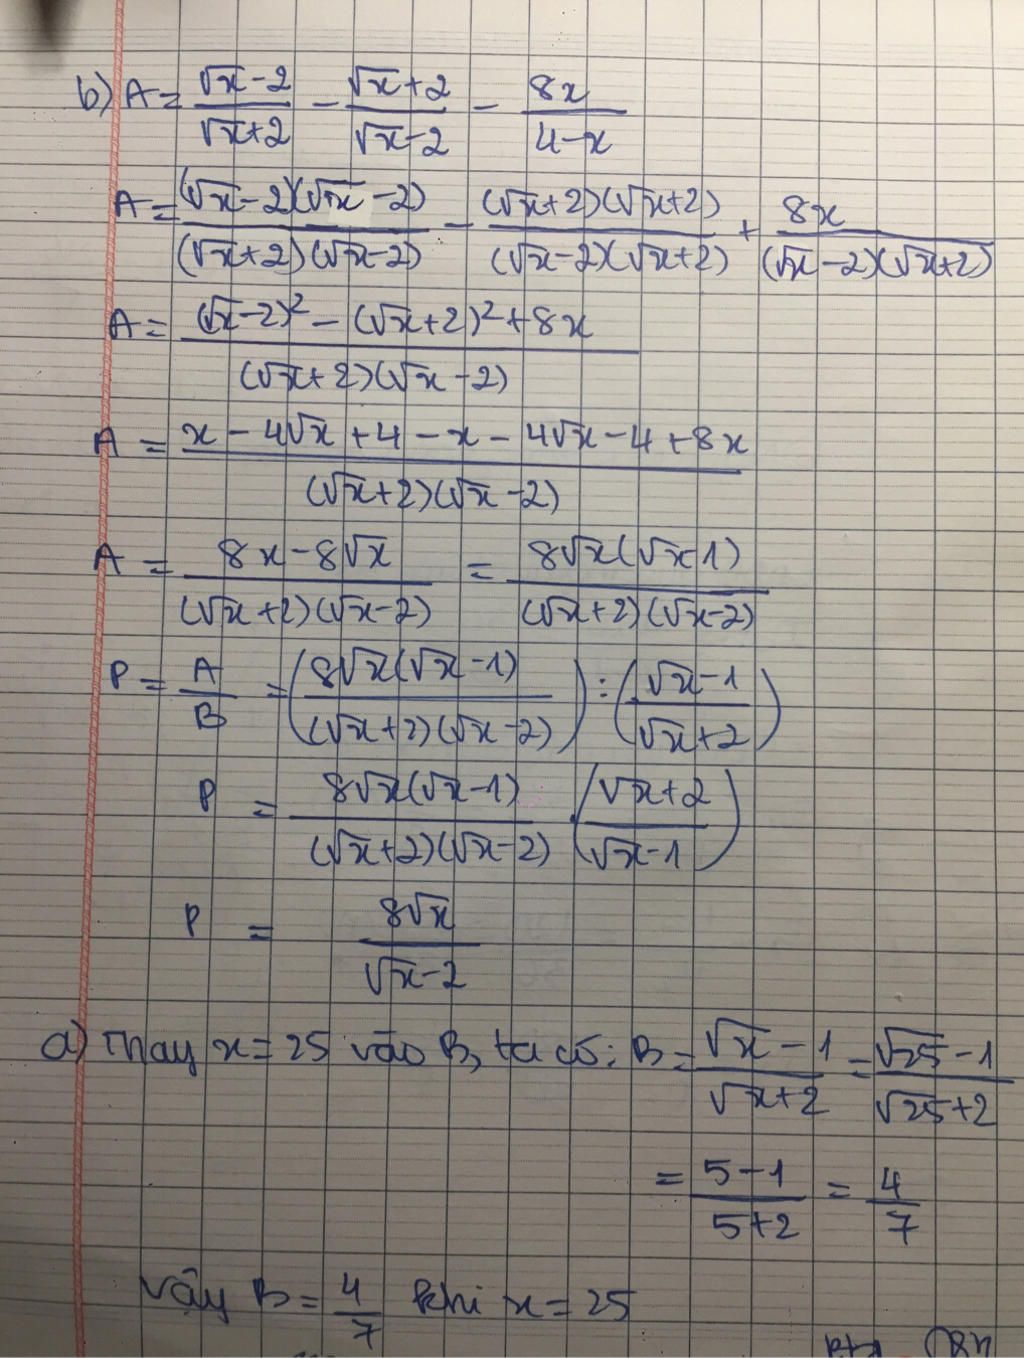 b) A = (√x - 2)/(√x + 2) - (√x + 2)/(√x - 2) - 8x/(4 - x)
A = (√x - 2)(√x - 2)/(√x + 2)(√x - 2) - (√x + 2)(√x + 2)/(√x - 2)(√x + 2) + 8x/(√x - 2)(√x + 2)
A = ((√x - 2)² - (√x + 2)² + 8x)/(√x + 2)(√x - 2)
A = (x - 4√x + 4 - x - 4√x - 4 + 8x)/(√x + 2)(√x - 2)
A = (8x - 8√x)/(√x + 2)(√x - 2) = 8√x(√x - 1)/(√x + 2)(√x - 2)
P = A/B = (8√x(√x - 1)/(√x + 2)(√x - 2)) : ((√x - 1)/(√x + 2))
P = 8√x(√x - 1)/(√x + 2)(√x - 2) ((√x + 2)/(√x - 1))
P = 8√x/(√x - 2)
a) Thay x = 25 vào B, ta có: B = (√x - 1)/(√x + 2) = (√25 - 1)/(√25 + 2)
= (5 - 1)/(5 + 2) = 4/7
Vậy B = 4/7 khi x = 25